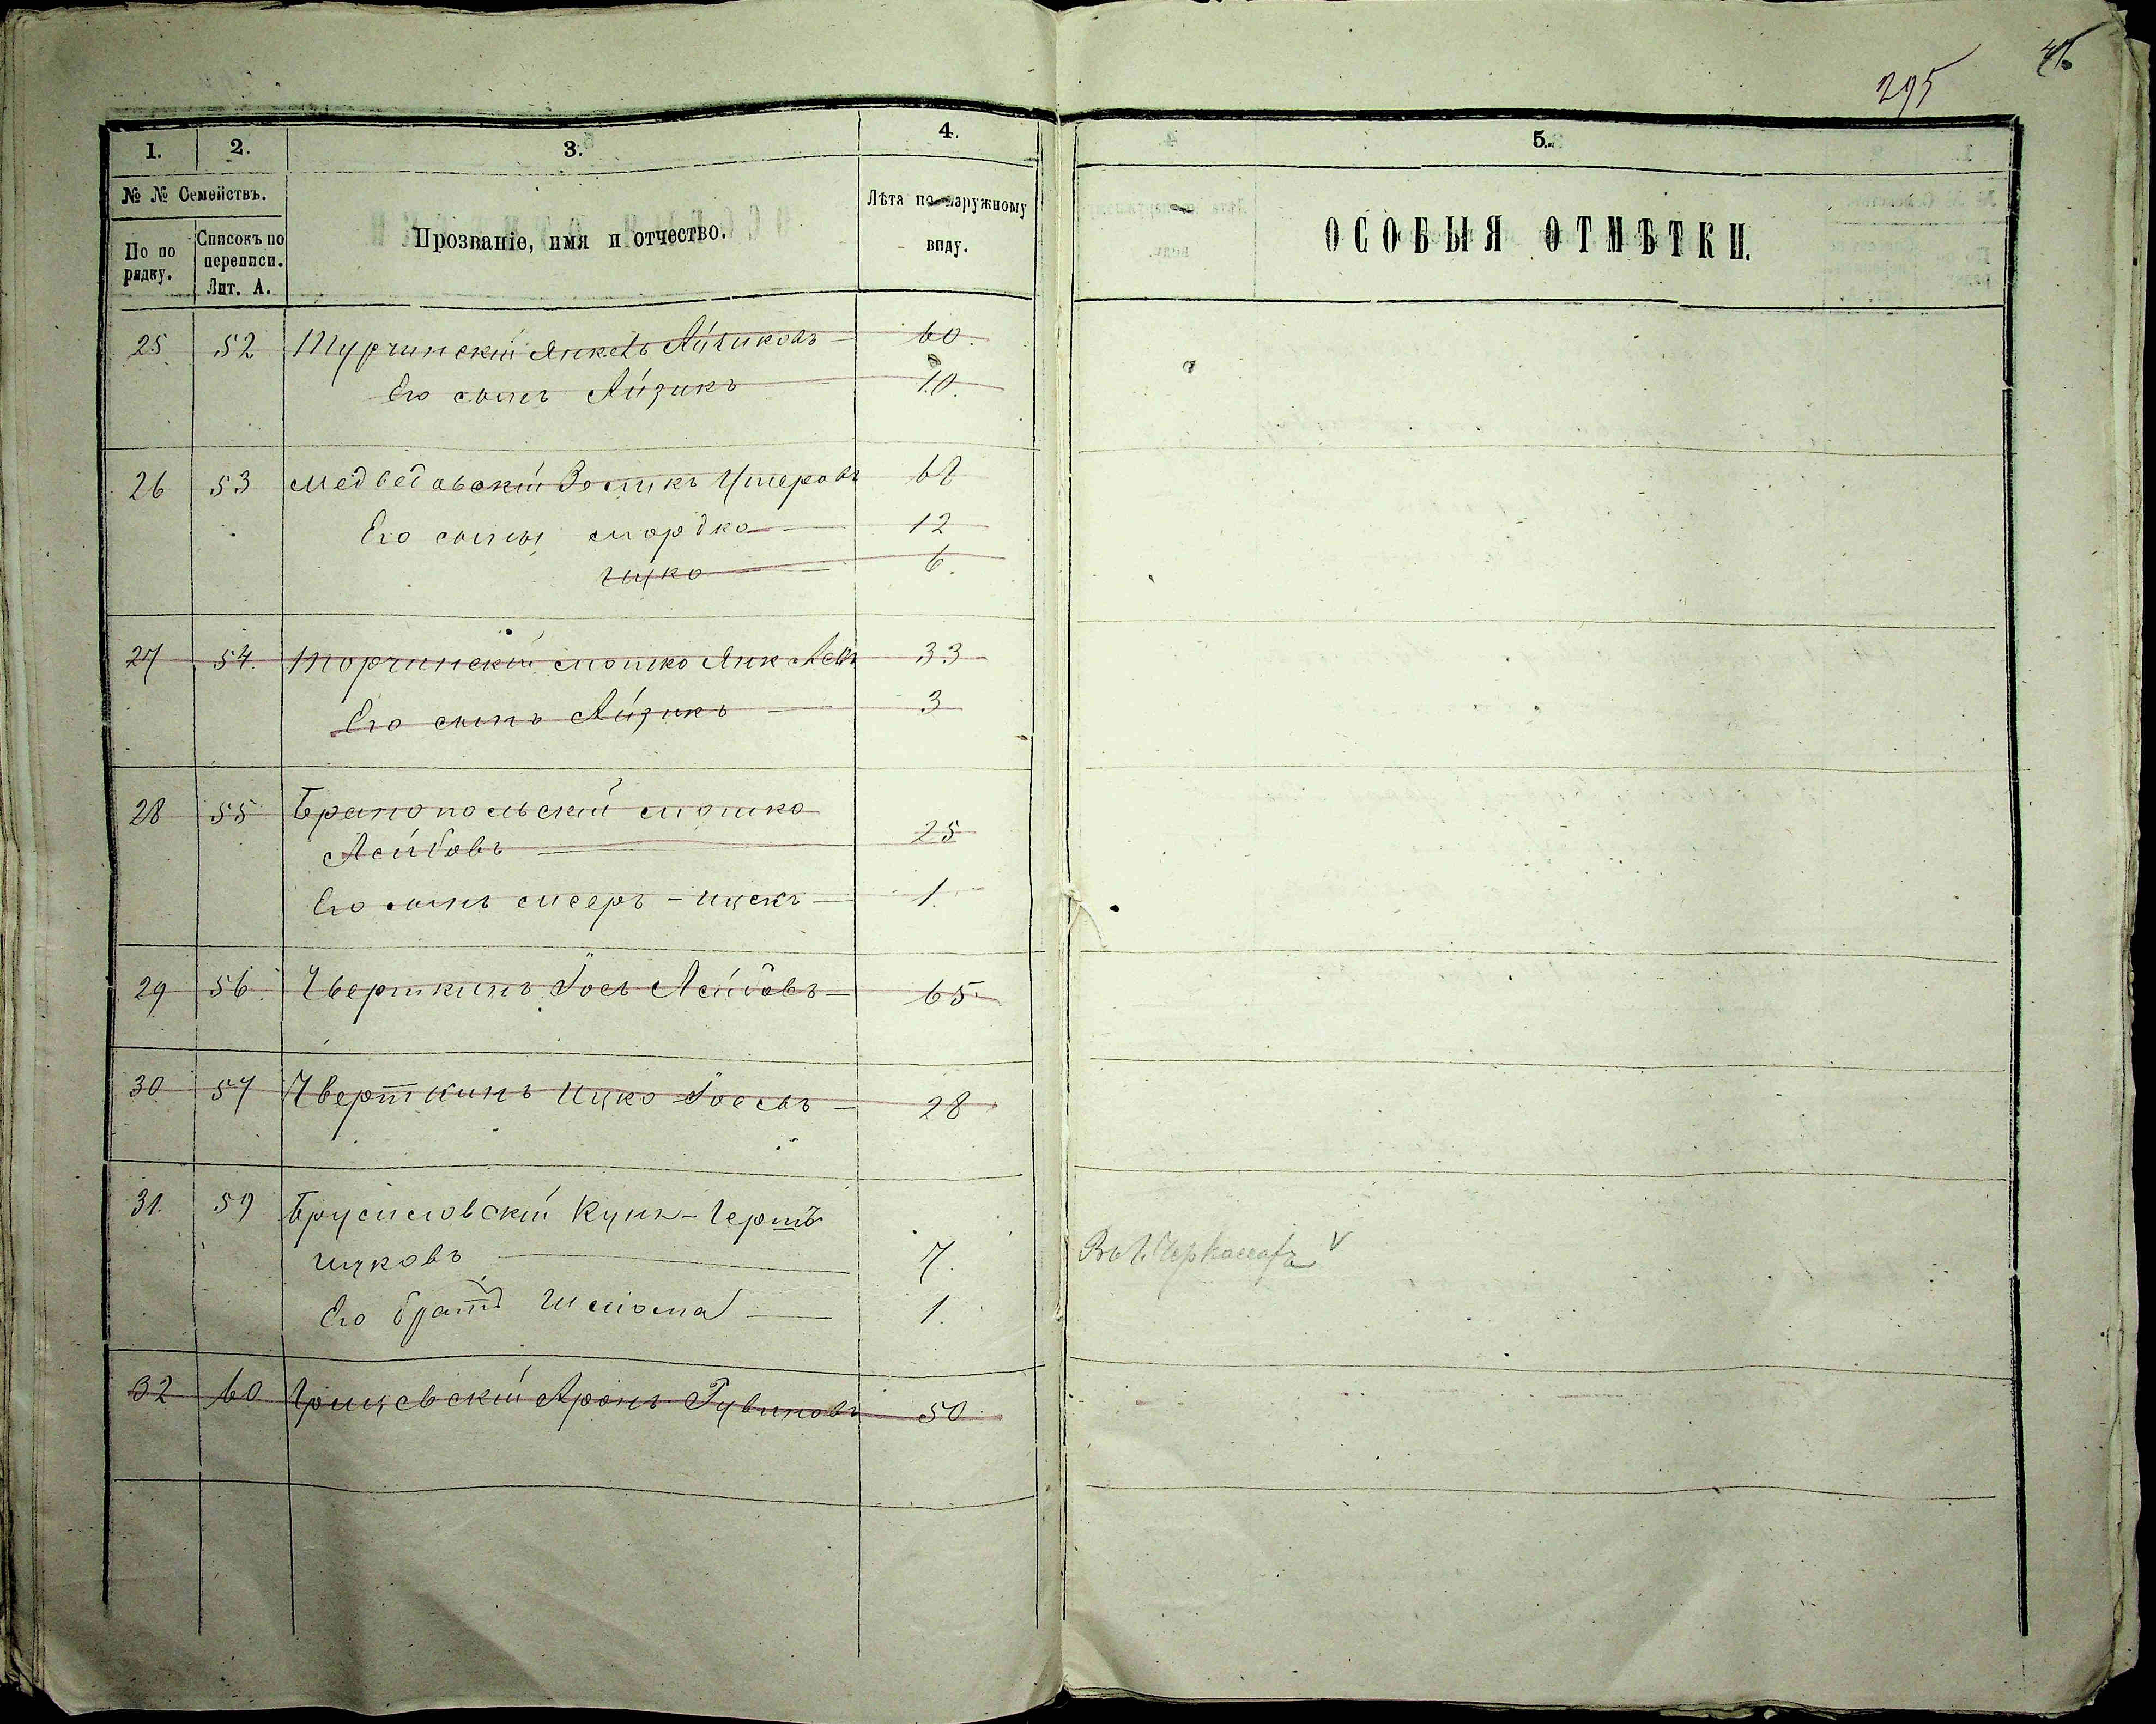 295
1.
2.
3.
4.
5.
№ № Семействъ.
По по рядку.
Списокъ по переписи. Лит. А.
Прозваніе, имя и отчество.
Лѣта по наружному виду.
ОСОБЫЯ ОТМѢТКИ.
25 52 Турчинскій Янкель Айзиковъ 60.
Его сынъ Айзикъ 10.
26 53 Медведовскій Зейликъ 67
Его сыны Мордко 12
Ицко 6.
27 54. Торчинскій Мошко Янкелевъ 33
Его сынъ Айзикъ 3
28 55 Мошко
Лейбовъ 25
Его сынъ Мееръ-Ицекъ 1.
29 56. Чверткинъ Іосъ Лейбовъ 65.
30 57 Чверткинъ Ицко Іосевъ 28
31. 59 Брусиловскій Куна-Гершъ
Ицковъ 7. Въ г. Черкассахъ
Его братъ Шлiома 1.
32 60 Грицевскій Аронъ Рувиновъ 50